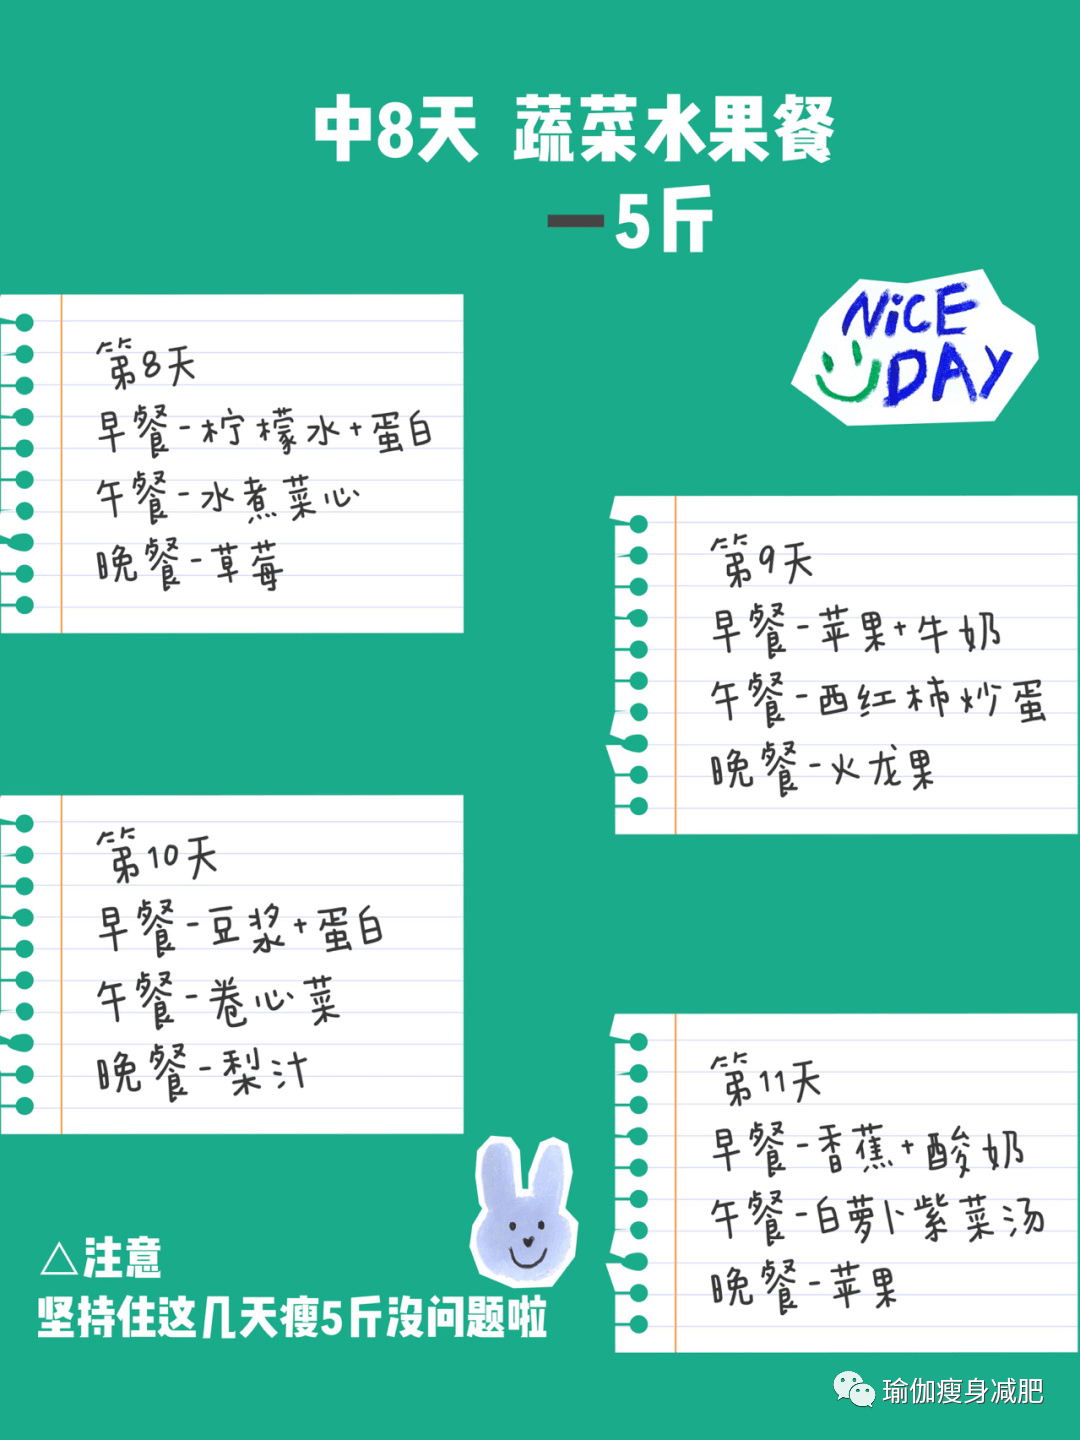 中8天 蔬菜水果餐
—5斤
NiCE
DAY
第8天
早餐-柠檬水+蛋白
午餐-水煮菜心
晚餐-草莓
第9天
早餐-苹果+牛奶
午餐-西红柿炒蛋
晚餐-火龙果
第10天
早餐-豆浆+蛋白
午餐-卷心菜
晚餐-梨汁
第11天
早餐-香蕉+酸奶
午餐-白萝卜紫菜汤
晚餐-苹果
△注意
坚持住这几天瘦5斤没问题啦
瑜伽瘦身减肥